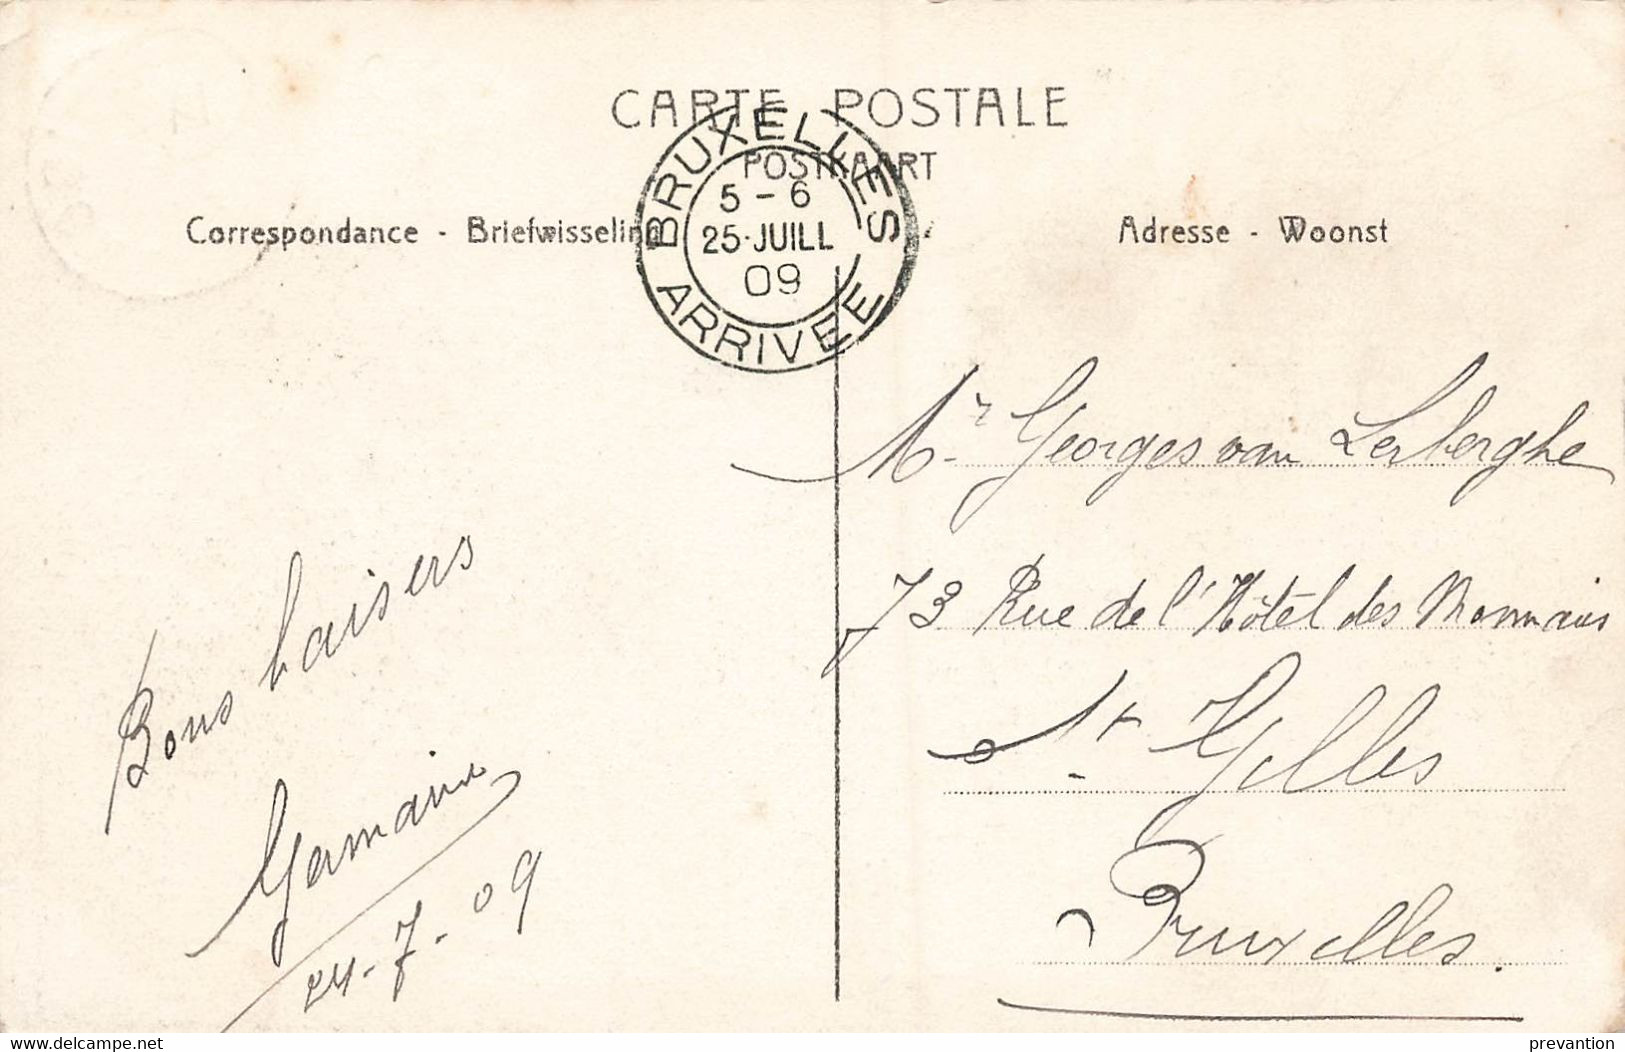 CARTE POSTALE
POSTKAART
Correspondance - Briefwisseling
Adresse - Woonst
BRUXELLES
5 - 6
25 · JUILL
09
ARRIVEE
Mr Georges van Lerberghe
73 Rue de l'Hôtel des Monnais
St Gilles
Bruxelles.
Bons baisers
Germaine
24-7-09
www.delcampe.net
prevantion